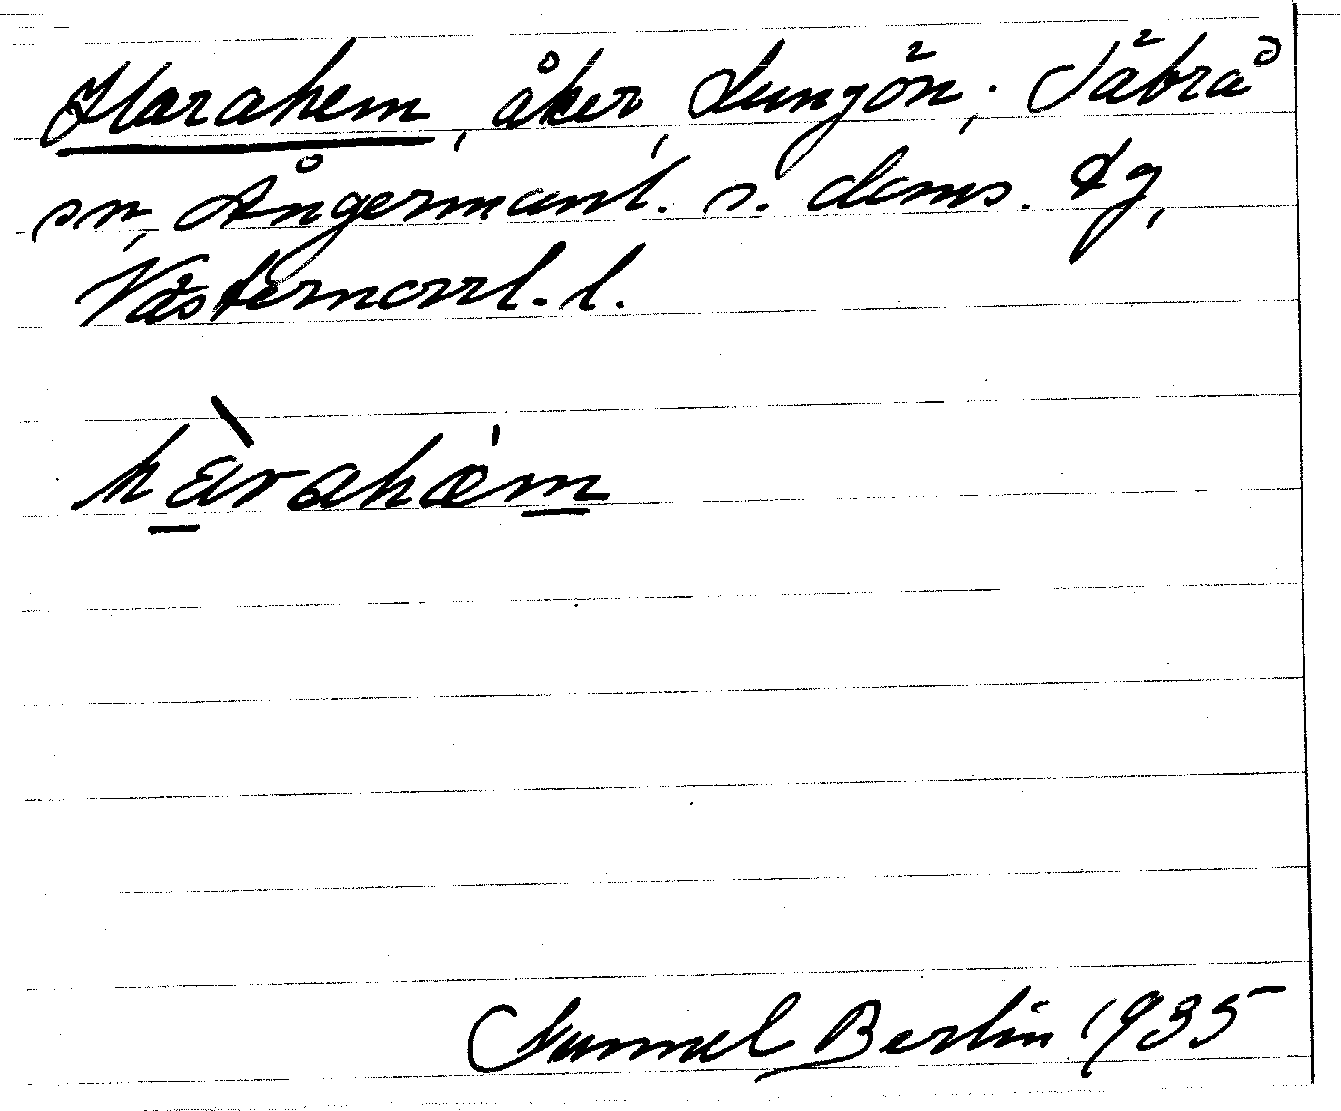 Harahem, åker, Lungön, Säbrå
sn, Ångermanl. s. doms. dg,
Västernorrl. l.
hàrahæ'm
Gunnel Berlin 1935